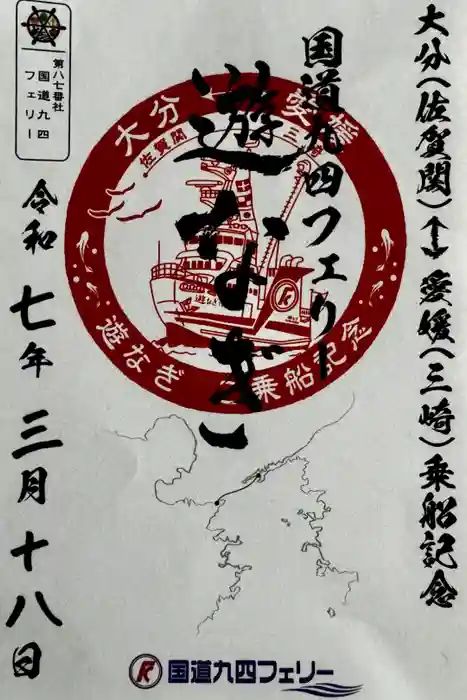 大分(佐賀関)↔愛媛(三崎)乗船記念
国道九四フェリー
遊なぎ
令和七年三月十八日
第八七番社
国道九四
フェリー
大分↔愛媛
佐賀関 三崎
遊なぎ 乗船記念
国道九四フェリー